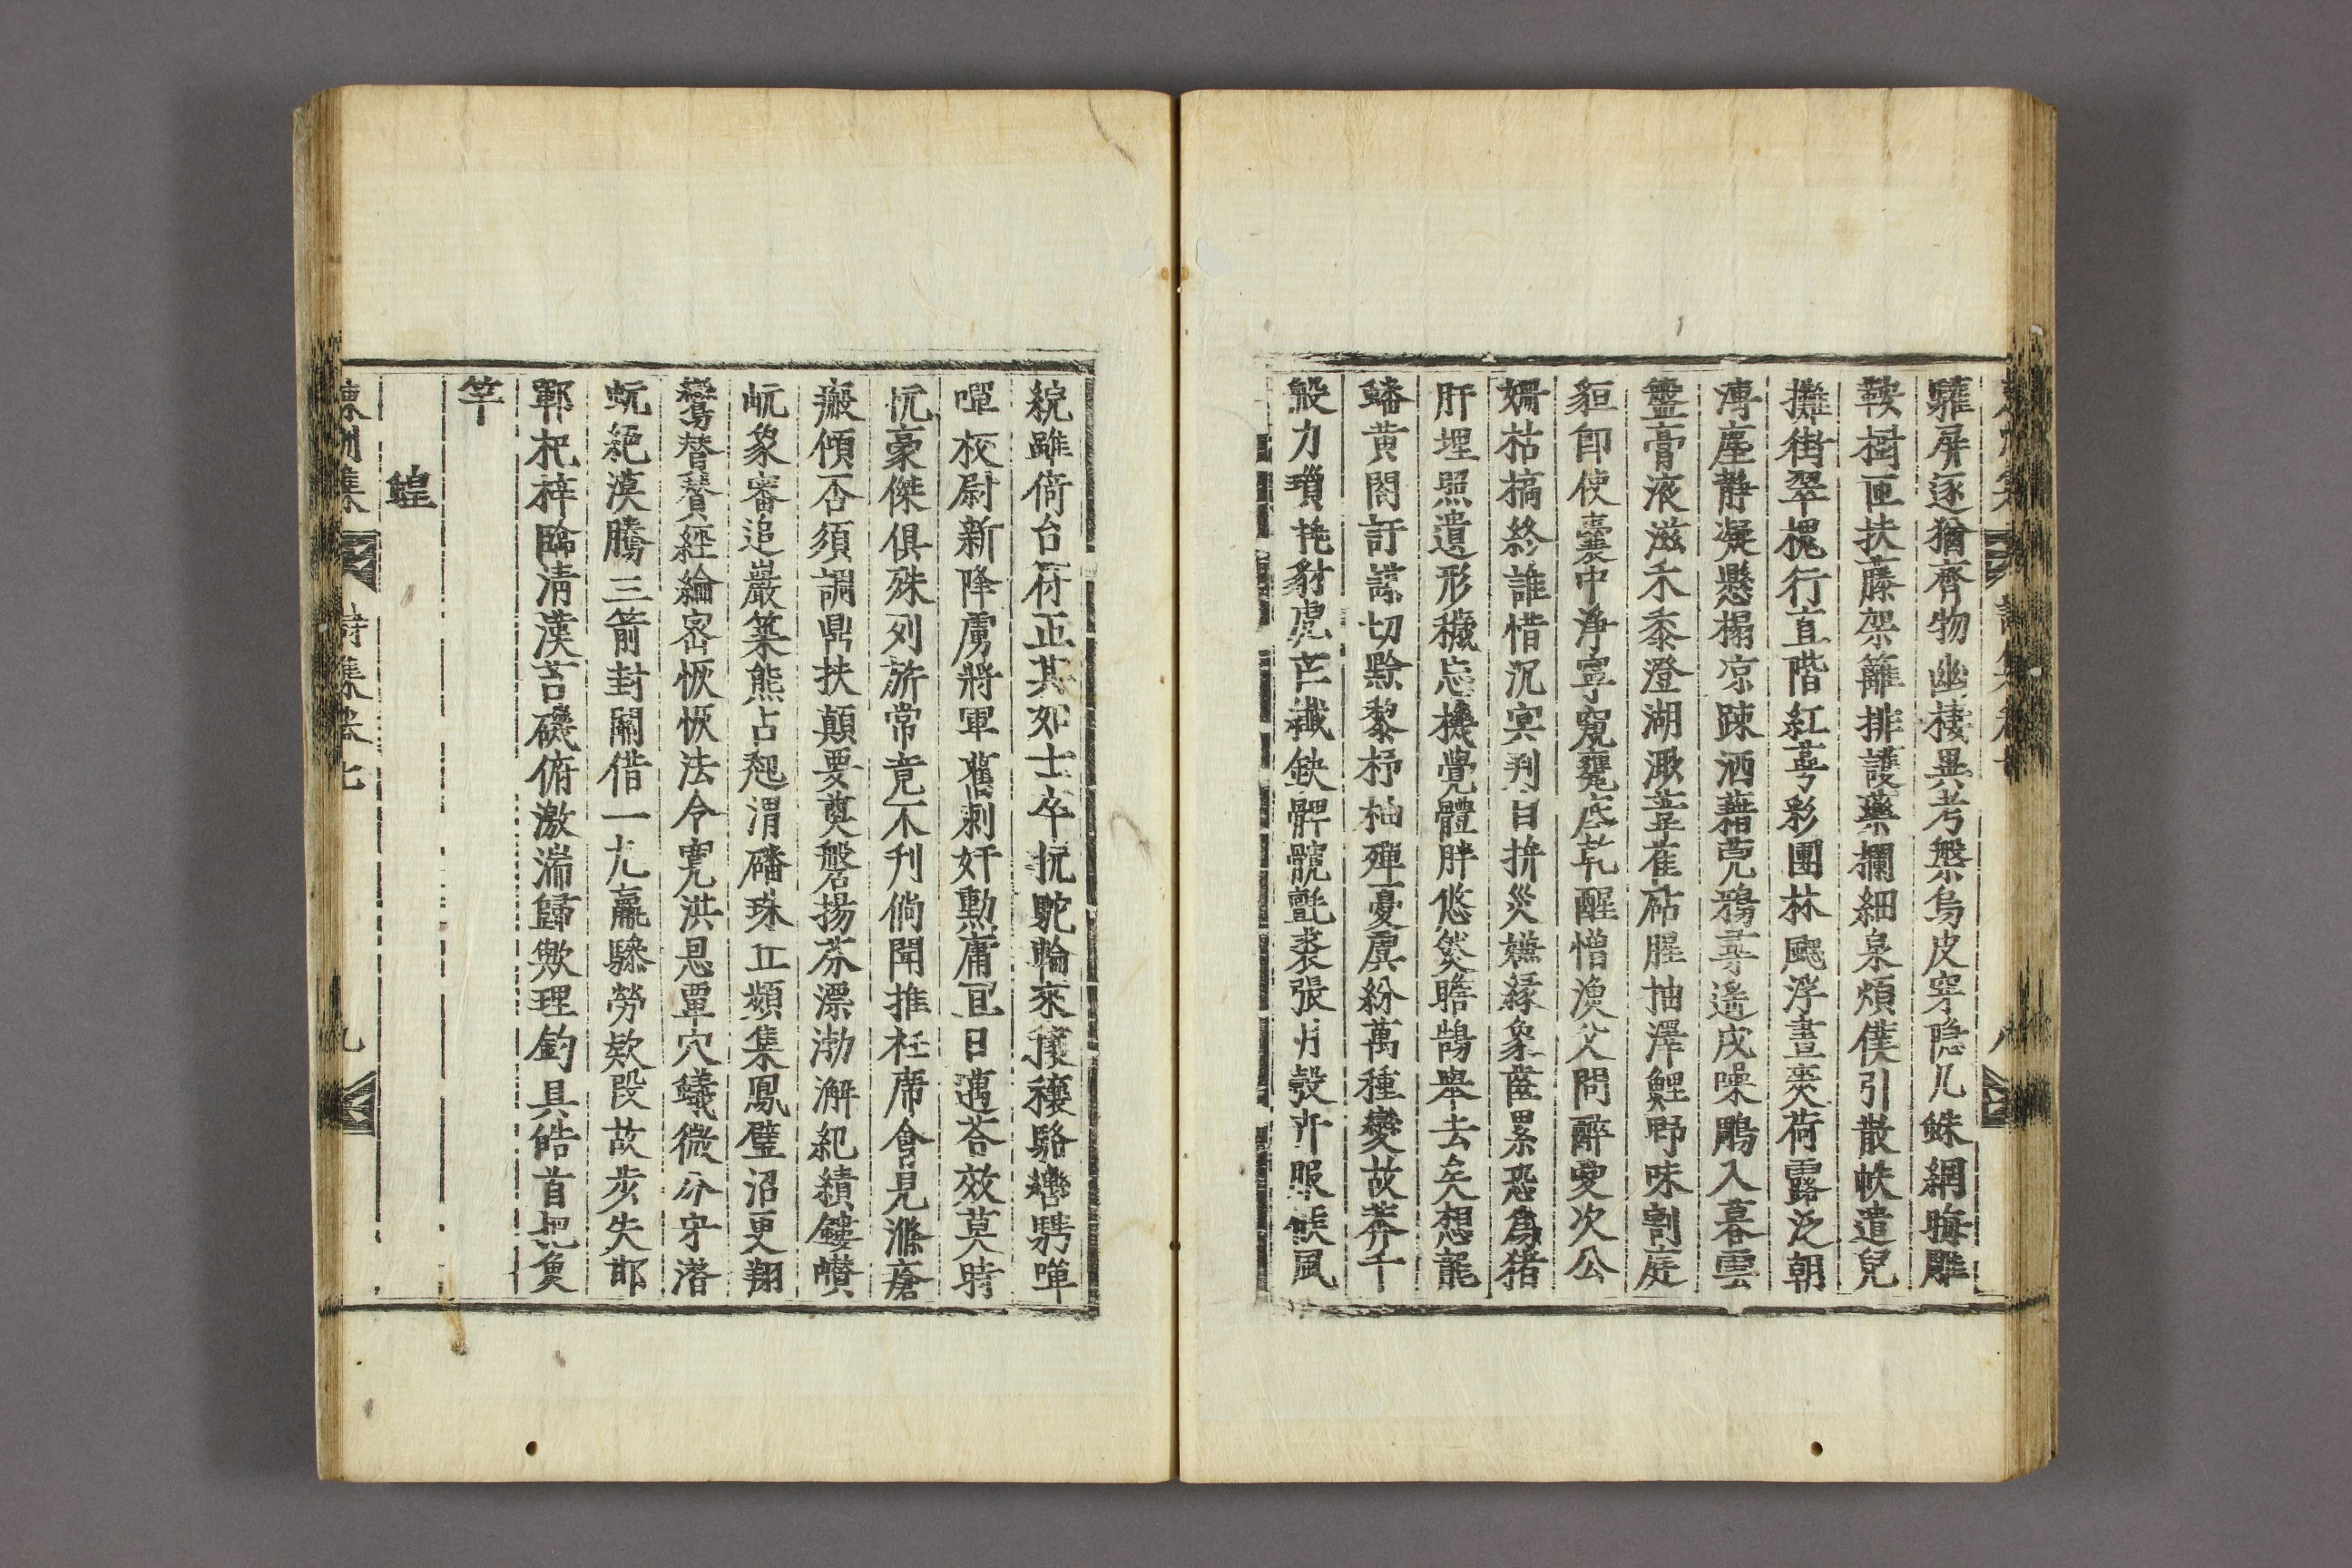 驊屏逐猶齊物幽棲異考槃烏皮穿隐几蛛網晦雕
鞍樹匝扶藤架籬排護藥欄細泉煩僕引散帙遣兒
攤街翠槐行直階紅蕚彩團林飈浮晝爽荷露泛朝
漙塵靜凝懸榻凉踈洒藉莞鴉尋遙戍噪鵰入暮雲
盤膏液滋禾黍澄湖溉葦萑砧腥抽澤鯉野味割庭
貆卽使囊中淨寧窺甕底乾醒憎漁父問醉愛次公
姍枯槁終誰惜沉冥判自拚災嫌緣象齒累恐爲猪
肝埋照遺形穢忘機覺體胖悠然瞻鵠擧去矣想龍
蟠黃閤訏謨切黔黎杼柚殫憂虞紛萬種變故莽千
般力瓊旄豺虎亡纖缺髀髖氈裘張月彀卉服候風
綂雖倚台符正其如士卒抏駝輪來穰穰駱轡騁嘽
嘽校尉新降虜將軍舊剌奸勳庸宜日邁荅效莫時
忨豪傑俱殊列旂常竟不刊倘聞推袵席會見滌瘡
瘢傾否須調鼎扶顚要奠盤揚芬漂渤澥紀績鏤巑
岏象審追巖築熊占起渭磻珠丘頻集鳳璧沼更翔
鸞替賛經綸密恢恢法令寬洪恩覃穴蟻微介守潛
蚖絕漠騰三箭封關借一丸羸驂勞欵段故步失邯
鄲杞梓臨淸漢苔磯俯激湍歸歟理釣具皓首把魚
竿
詩集卷七
九